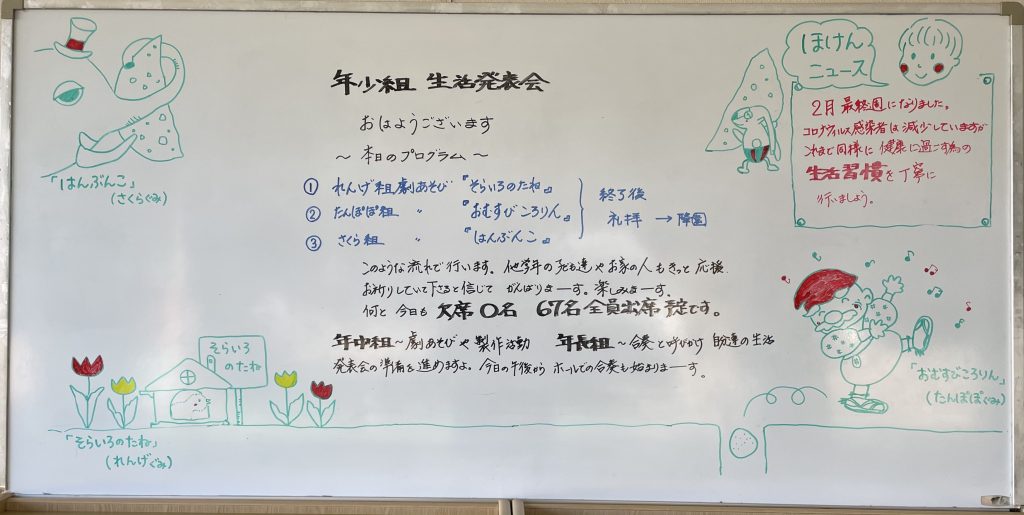 年少組 生活発表会
おはようございます
～ 本日のプログラム ～
① れんげ組 劇あそび 『そらいろのたね』
② たんぽぽ組 〃 『おむすびころりん』
③ さくら組 〃 『はんぶんこ』
終了後
礼拝 → 降園
このような流れで行います。他学年の子ども達やお家の人もきっと応援
お祈りしていて下さると信じて がんばりまーす。楽しみまーす。
何と 今日も 欠席 0名 67名 全員出席 予定です。
年中組～劇あそびや製作活動 年長組～合奏と呼びかけ 自分達の生活
発表会の準備を進めますよ。今日の午後から ホールでの合奏も始まりまーす。
「はんぶんこ」
(さくらぐみ)
ほけん
ニュース
2月 最終週になりました。
コロナウイルス感染者は減少していますが
これまで同様に 健康に過ごす為の
生活習慣を丁寧に
行いましょう。
そらいろ
のたね
「そらいろのたね」
(れんげぐみ)
「おむすびころりん」
(たんぽぽぐみ)